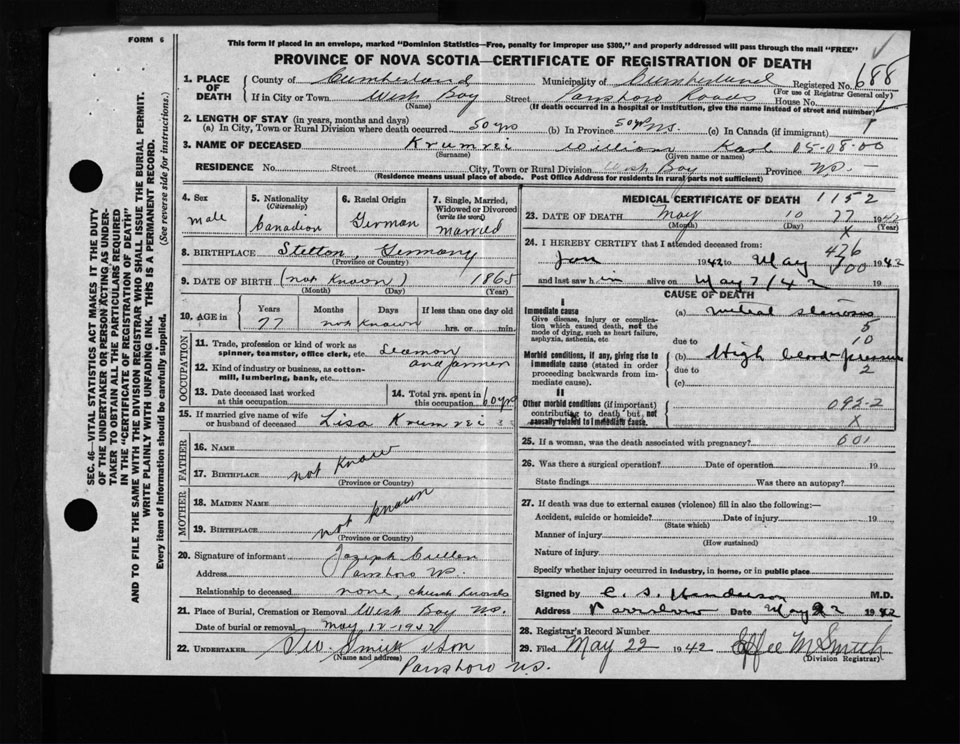 FORM 6
This form if placed in an envelope, marked "Dominion Statistics—Free, penalty for improper use $300," and properly addressed will pass through the mail "FREE"
PROVINCE OF NOVA SCOTIA—CERTIFICATE OF REGISTRATION OF DEATH
1. PLACE OF DEATH
County of Cumberland Municipality of Cumberland Registered No. 688
(For use of Registrar General only)
If in City or Town West Bay Street Parrsboro Roads House No.
(Name) (If death occurred in a hospital or institution, give the name instead of street and number)
2. LENGTH OF STAY (in years, months and days)
(a) In City, Town or Rural Division where death occurred 50 yrs (b) In Province 50 yrs NS. (c) In Canada (if immigrant)
3. NAME OF DECEASED Krumrei William Karl 05-08-00
(Surname) (Given name or names)
RESIDENCE No. Street City, Town or Rural Division West Bay Province NS.
(Residence means usual place of abode. Post Office Address for residents in rural parts not sufficient)
4. Sex
male
5. Nationality
(Citizenship)
Canadian
6. Racial Origin
German
7. Single, Married, Widowed or Divorced
(write the word)
Married
8. BIRTHPLACE Stetton, Germany
(Province or Country)
9. DATE OF BIRTH (not Known) 1865
(Month) (Day) (Year)
10. AGE in
Years Months Days If less than one day old
77 not Known hrs. or min.
OCCUPATION
11. Trade, profession or kind of work as spinner, teamster, office clerk, etc. Seaman
and farmer
12. Kind of industry or business, as cotton-mill, lumbering, bank, etc.
13. Date deceased last worked at this occupation
14. Total yrs. spent in this occupation 60 yrs
15. If married give name of wife or husband of deceased Lisa Krumrei
FATHER
16. NAME
17. BIRTHPLACE not Know
(Province or Country)
MOTHER
18. MAIDEN NAME
19. BIRTHPLACE not known
(Province or Country)
20. Signature of informant Joseph Cullen
Address Parrsboro NS.
Relationship to deceased none, church records
21. Place of Burial, Cremation or Removal West Bay NS.
Date of burial or removal may 12 - 1942
22. UNDERTAKER Geo. Smith & Son
(Name and address)
Parrsboro NS.
MEDICAL CERTIFICATE OF DEATH 1152
23. DATE OF DEATH May 10 77 1942
(Month) (Day) (Year)
X
24. I HEREBY CERTIFY that I attended deceased from:
476
Jan 1942 to May 1942
and last saw h im alive on May 7/42 19
CAUSE OF DEATH
I
Immediate cause
Give disease, injury or complication which caused death, not the mode of dying, such as heart failure, asphyxia, asthenia, etc
(a) mitral stenosis
5
due to 10
Morbid conditions, if any, giving rise to immediate cause (stated in order proceeding backwards from immediate cause).
(b) High blood-pressure
due to 2
(c)
II
Other morbid conditions (if important) contributing to death but not causally related to immediate cause.
092-2
X
25. If a woman, was the death associated with pregnancy? 601
26. Was there a surgical operation? Date of operation 19
State findings Was there an autopsy?
27. If death was due to external causes (violence) fill in also the following:—
Accident, suicide or homicide? Date of injury 19
(State which)
Manner of injury
(How sustained)
Nature of injury
Specify whether injury occurred in industry, in home, or in public place
Signed by C. S. Henderson M.D.
Address Parrsboro Date May 22 1942
28. Registrar's Record Number
29. Filed May 22 1942 Effee M Smith
(Division Registrar)
SEC. 46—VITAL STATISTICS ACT MAKES IT THE DUTY
OF THE UNDERTAKER OR PERSON ACTING AS UNDER-
TAKER TO OBTAIN ALL THE PARTICULARS REQUIRED
IN THE "CERTIFICATE OF REGISTRATION OF DEATH"
AND TO FILE THE SAME WITH THE DIVISION REGISTRAR WHO SHALL ISSUE THE BURIAL PERMIT.
WRITE PLAINLY WITH UNFADING INK. THIS IS A PERMANENT RECORD.
Every item of information should be carefully supplied. (See reverse side for instructions.)